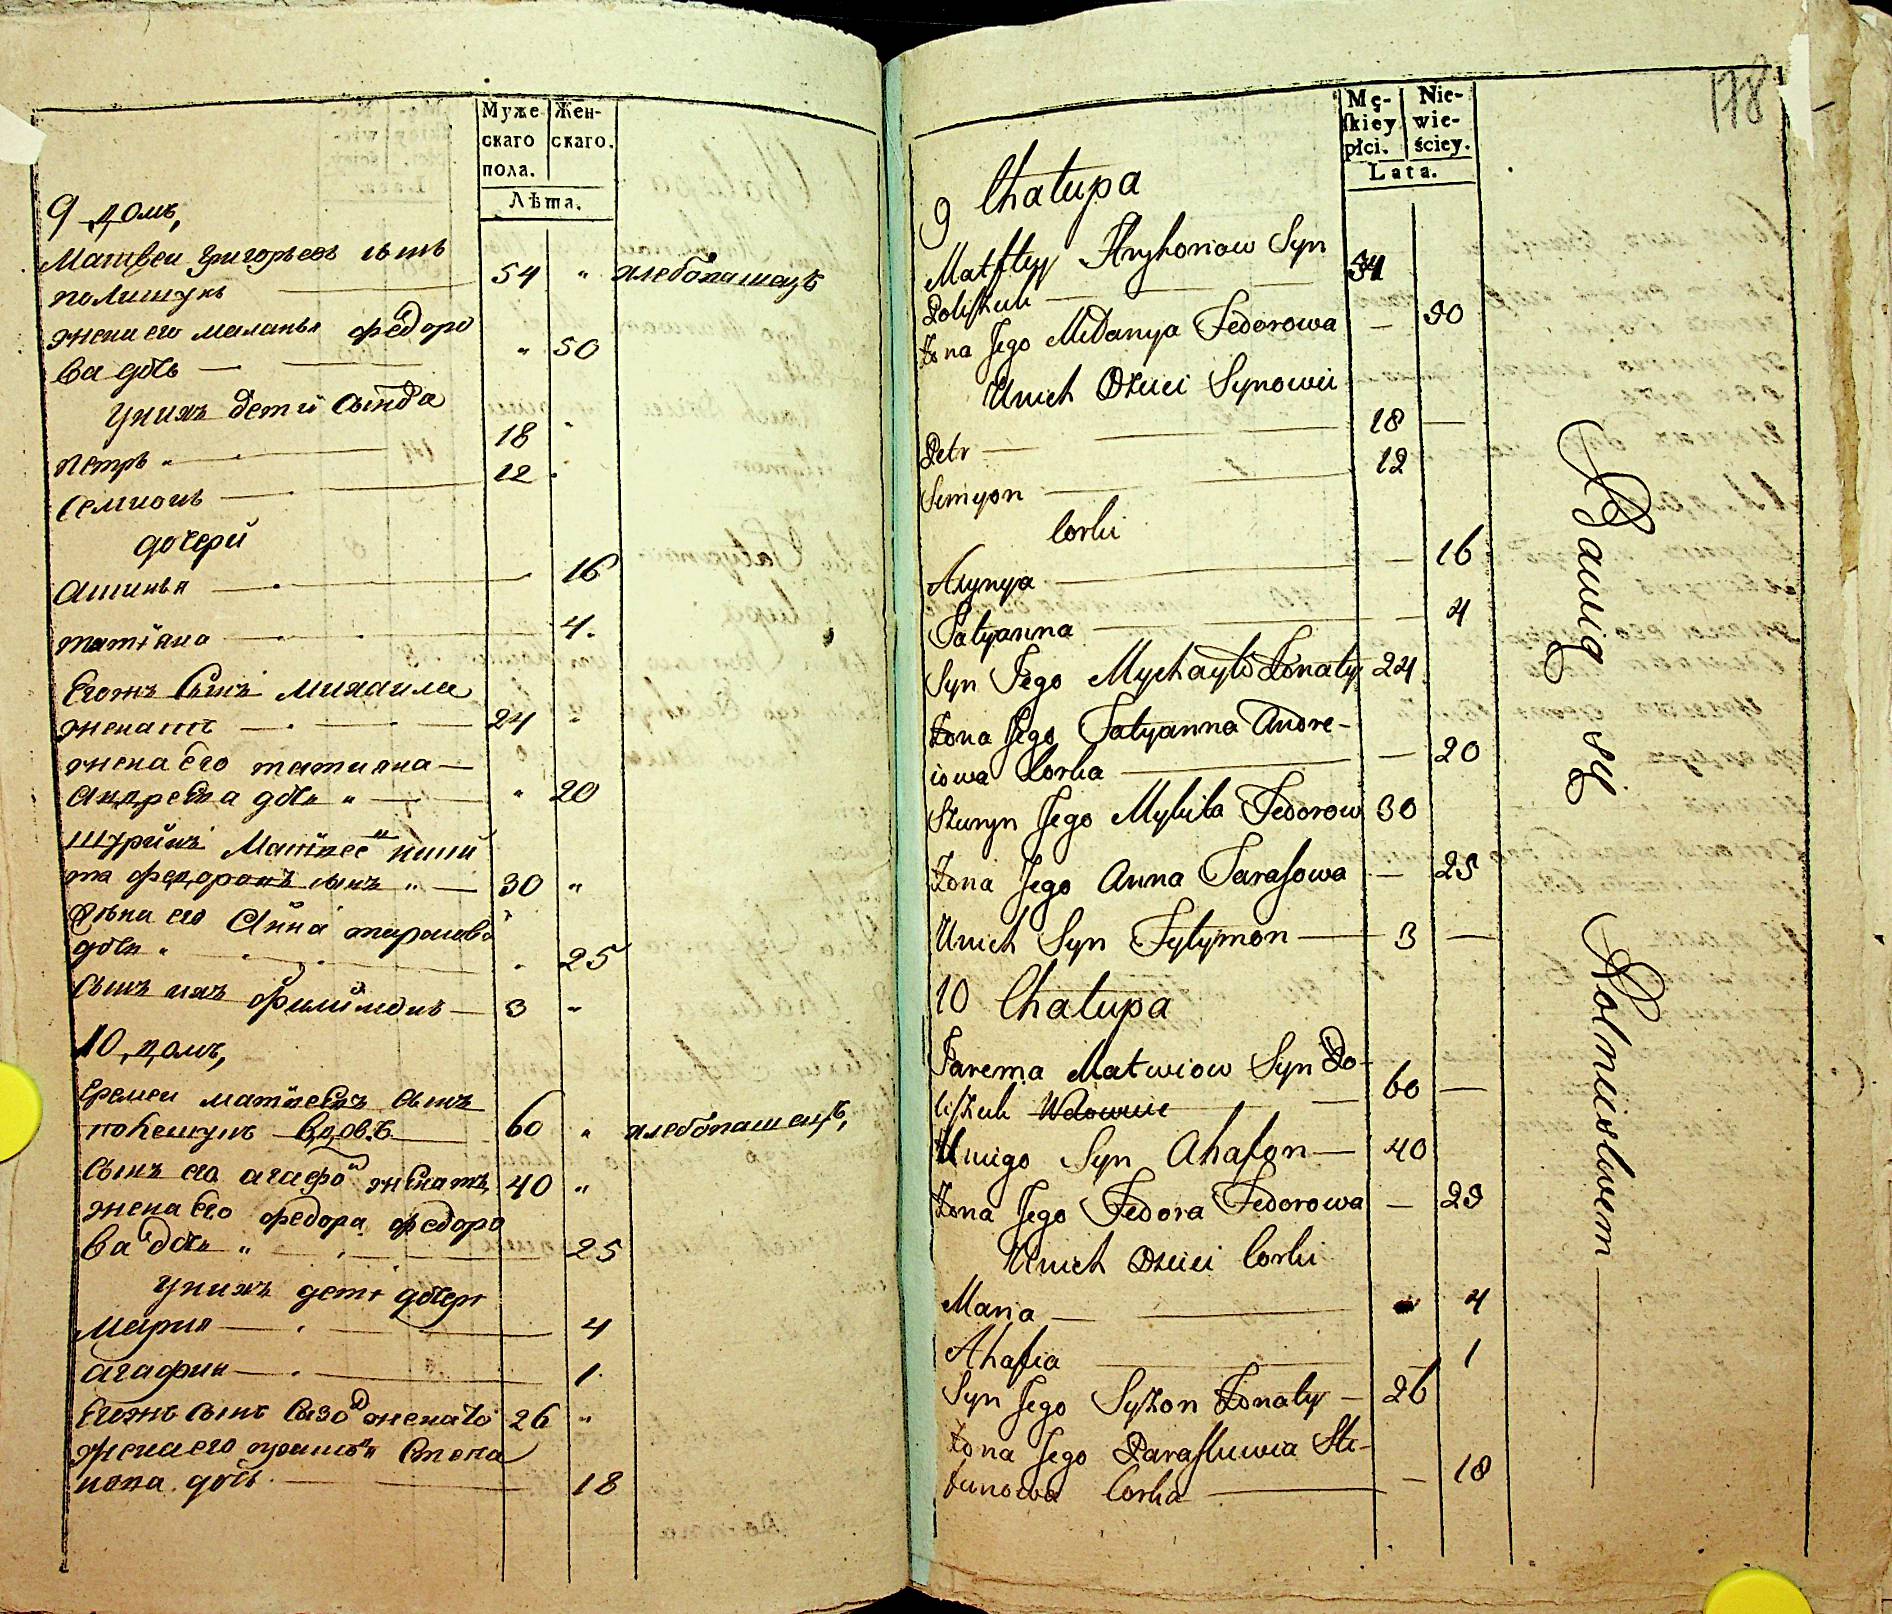 Муже- Жен-
скаго скаго.
пола.
Лѣта.
9 домъ,
Матвеи григорьевъ сынъ
полищукъ 54 " хлебопашецъ
жена его маланья федоро
ва дочь " 50
Унихъ дети сынова
петръ " 18 "
семионъ 12 "
дочери
агинья 16
татіяна 4.
Егожъ Сынъ михаила
женатъ 24 "
жена его татияна
андреева дочь " " 20
шуринъ Матвеевъ ники
та федоровъ сынъ " 30 "
жена его Анна тарасова
дочь " 25
Сынъ ихъ филимонъ 3 "
10 домъ,
Еремеи матвеевъ сынъ
полещукъ вдовъ 60 " хлебопашецъ,
Сынъ его агафонъ женатъ 40 "
жена Его федора федоро
ва дочь " 25
унихъ дети дочери
Мария 4
агафия 1
Егожъ сынъ Сазонъ женатъ 26 "
жена его Степа
нова дочь 18
178
Mę- Nie-
ſkiey wie-
płci. ściey.
Lata.
9 Chałupa
Matfiey Hryhoriow Syn
Poliſzuk 54
Żona Jego Mełanya Fedorowa — 50
Unich Dzieci Synowie
Petr 18 —
Semyon 12
Corki
Axynya — 16
Tatyanna — 4
Syn Jego Mychayło Żonaty 24
Żona Jego Tatyanna Andre-
iowa Corka — 20
Szuryn Jego Mykita Fedorow 30
Żona Jego Anna Taraſowa — 25
Unich Syn Fylymon 3 —
10 Chałupa
Jarema Matwiow Syn Po-
liſzuk Wdowiec 60 —
Uniego Syn Ahafon 40
Żona Jego Fedora Fedorowa — 25
Unich Dzieci Corki
Maria 4
Ahafia — 1
Syn Jego Syzon Żonaty 26
Żona Jego Paraſkiwia Ste-
panowa Corka — 18
Bawią się Rolnictwem